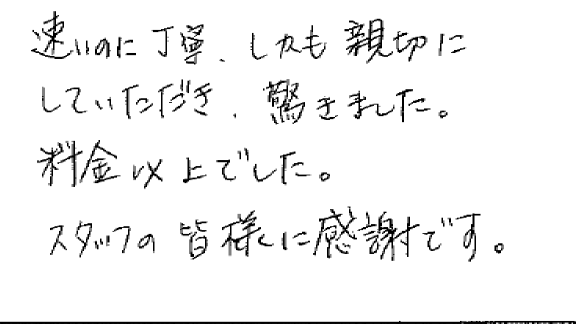 速いのに丁寧、しかも親切に
していただき、驚きました。
料金以上でした。
スタッフの皆様に感謝です。